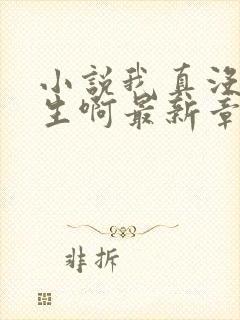 小説我真没
生啊最新章
非拆